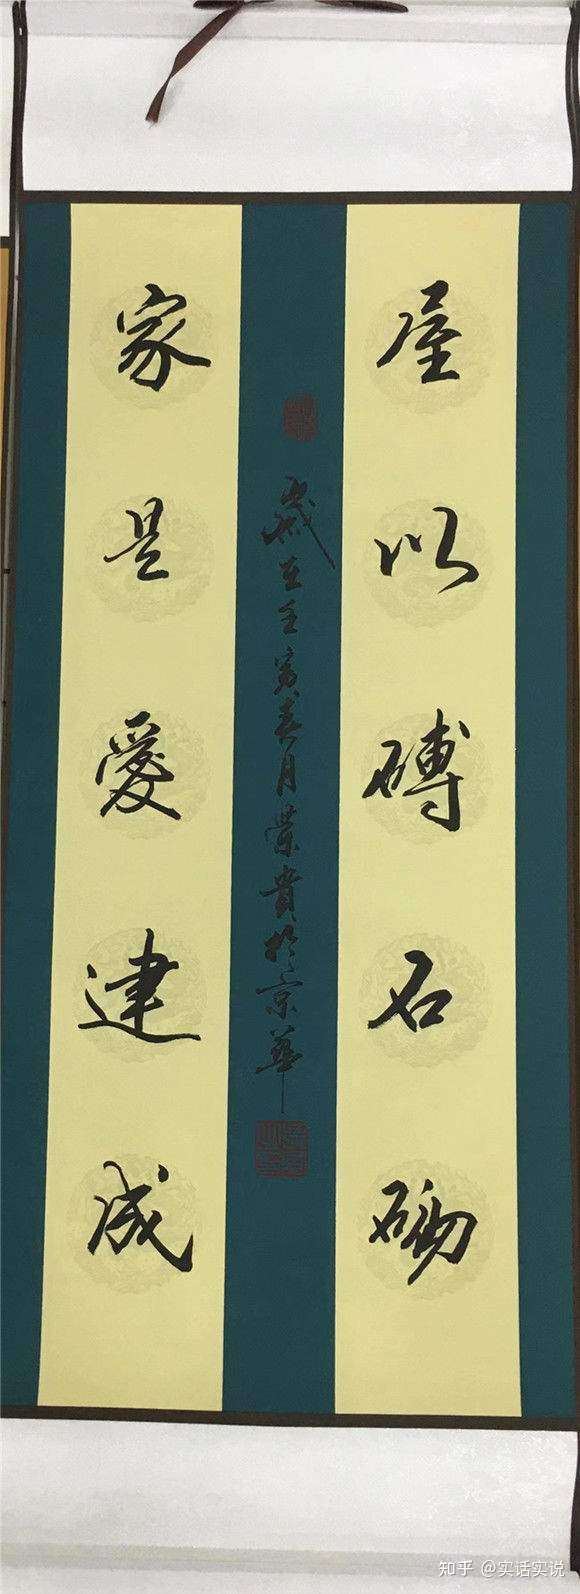 屋以磚石砌
歲在壬寅春月榮貴於京華
家是愛建成
知乎 @实话实说